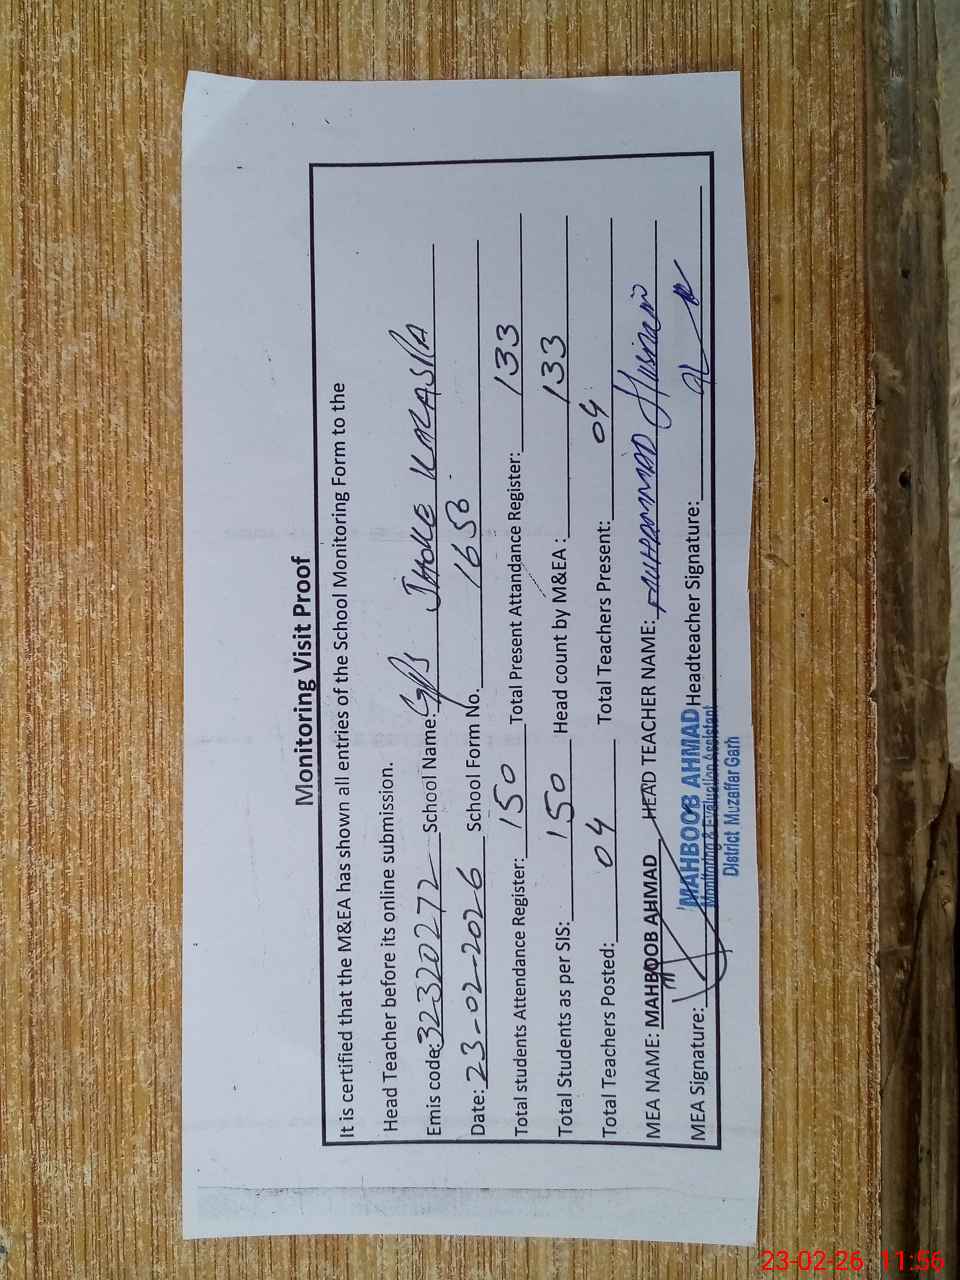 Monitoring Visit Proof
It is certified that the M&EA has shown all entries of the School Monitoring Form to the
Head Teacher before its online submission.
Emis code: 32320272 School Name: GPS JHOKE
Date: 23-02-2026 School Form No. 1650
Total students Attendance Register: 150 Total Present Attandance Register: 133
Total Students as per SIS: 150 Head count by M&EA : 133
Total Teachers Posted: 04 Total Teachers Present: 04
MEA NAME: MAHBOOB AHMAD HEAD TEACHER NAME: MUHAMMAD
MEA Signature: Headteacher Signature:
MAHBOOB AHMAD
Monitoring & Evaluation Assistant
District Muzaffar Garh
23-02-26 11:56